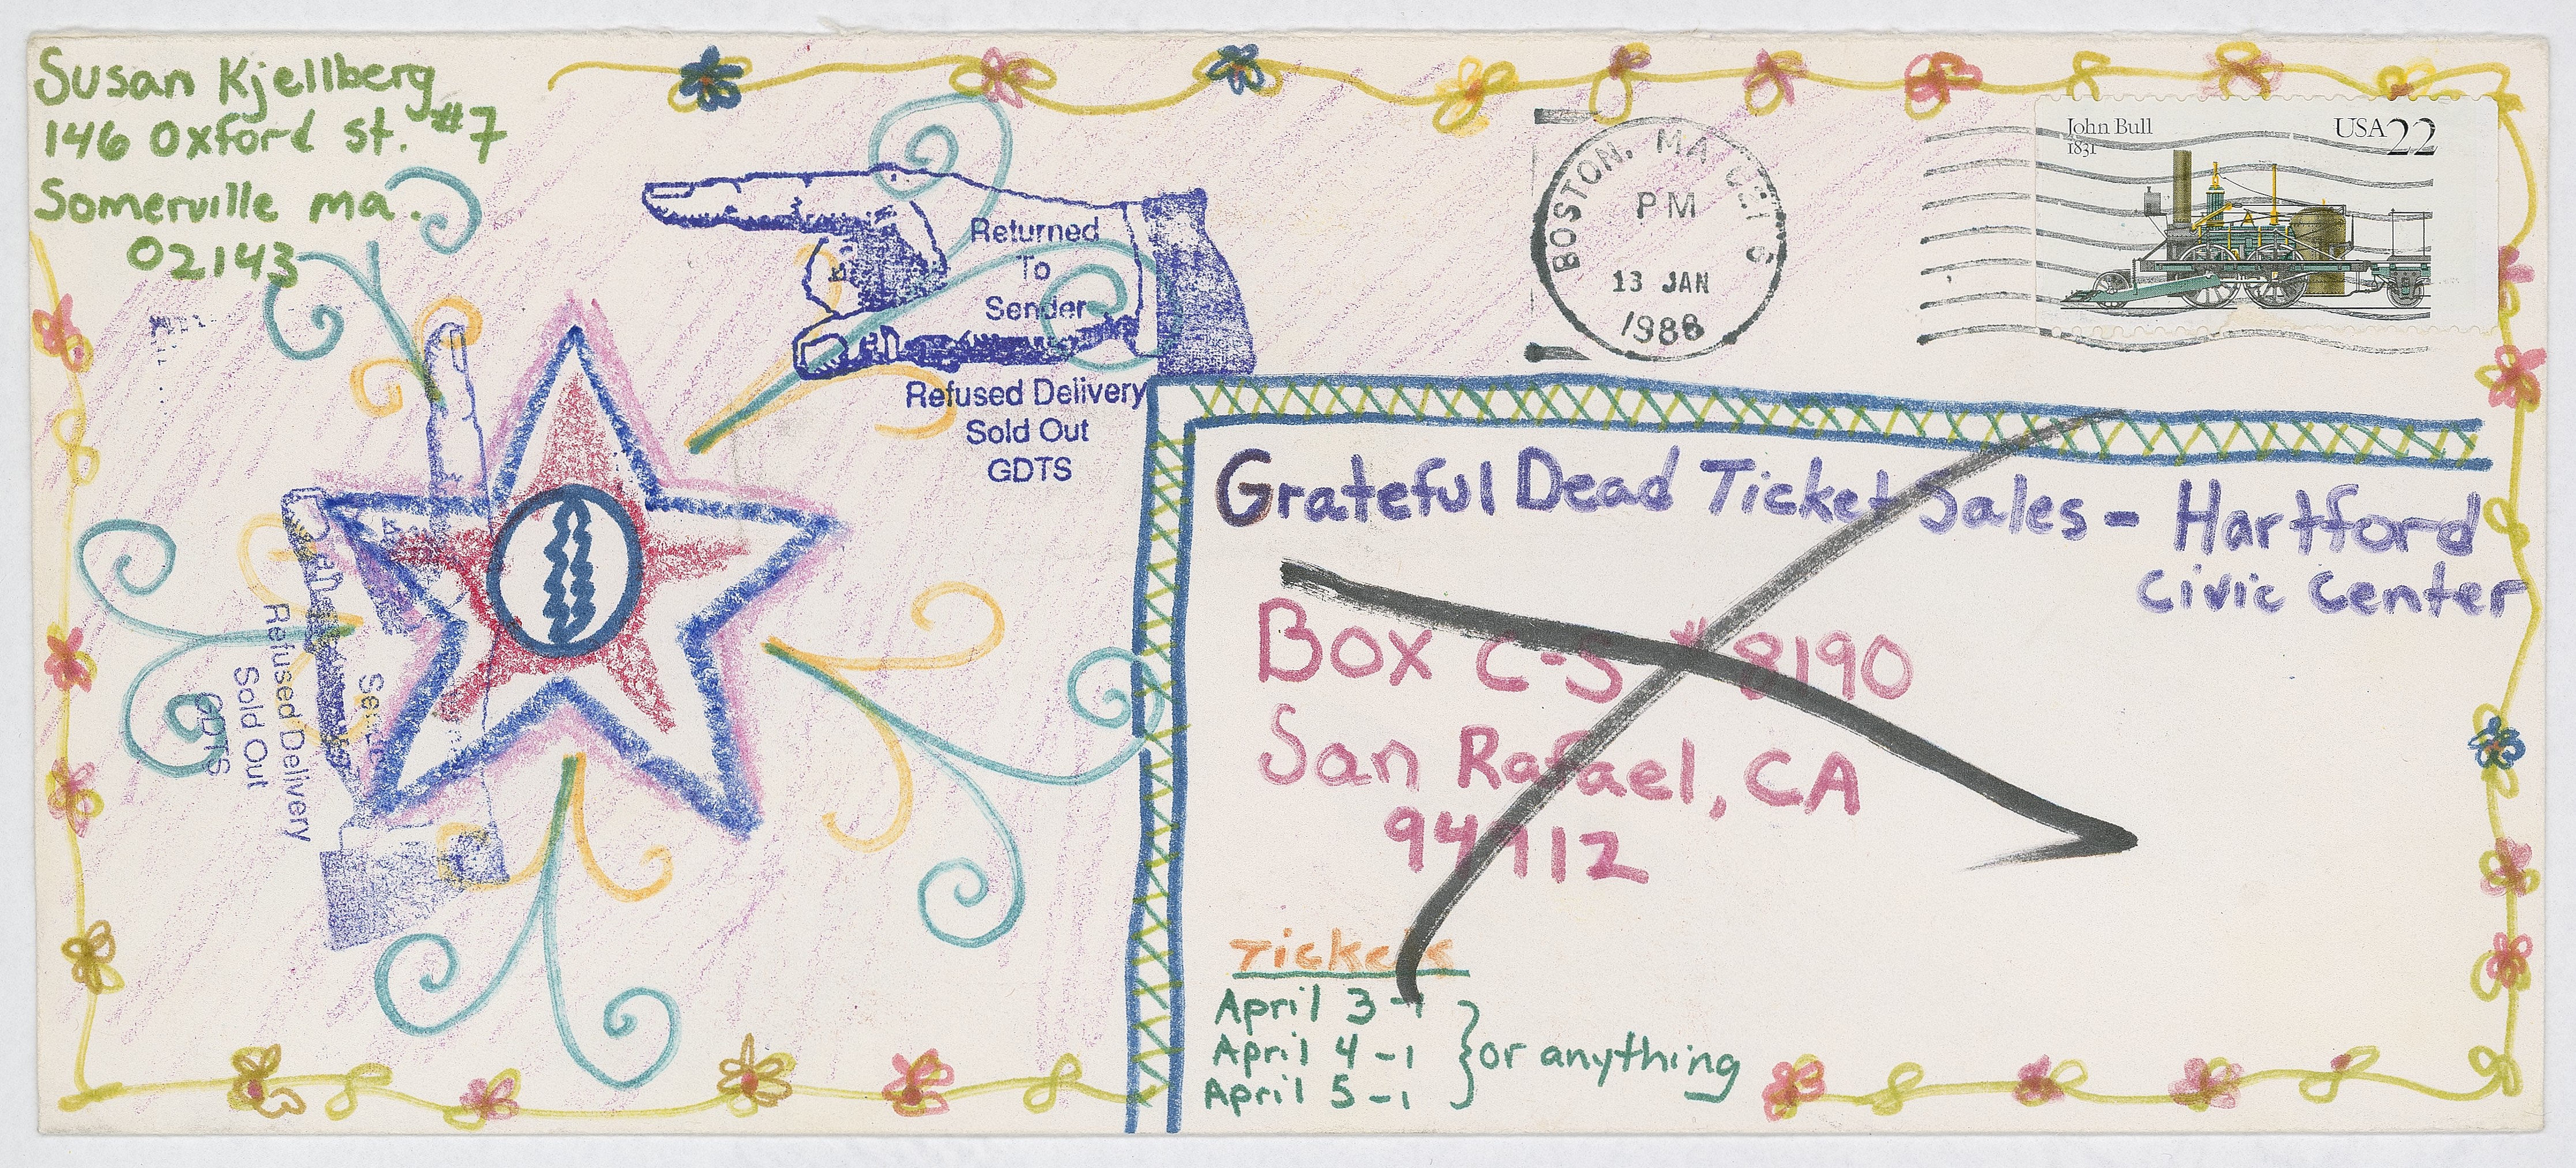 Susan Kjellberg
146 Oxford st. #7
Somerville ma.
02143
Returned
To
Sender
Refused Delivery
Sold Out
GDTS
BOSTON, MA
PM
13 JAN
1988
John Bull
1831
USA 22
Grateful Dead Ticket Sales - Hartford
Civic Center
Box C-S #8190
San Rafael, CA
94912
Tickets
April 3-1
April 4-1
April 5-1
} or anything
Sender
Refused Delivery
Sold Out
GDTS